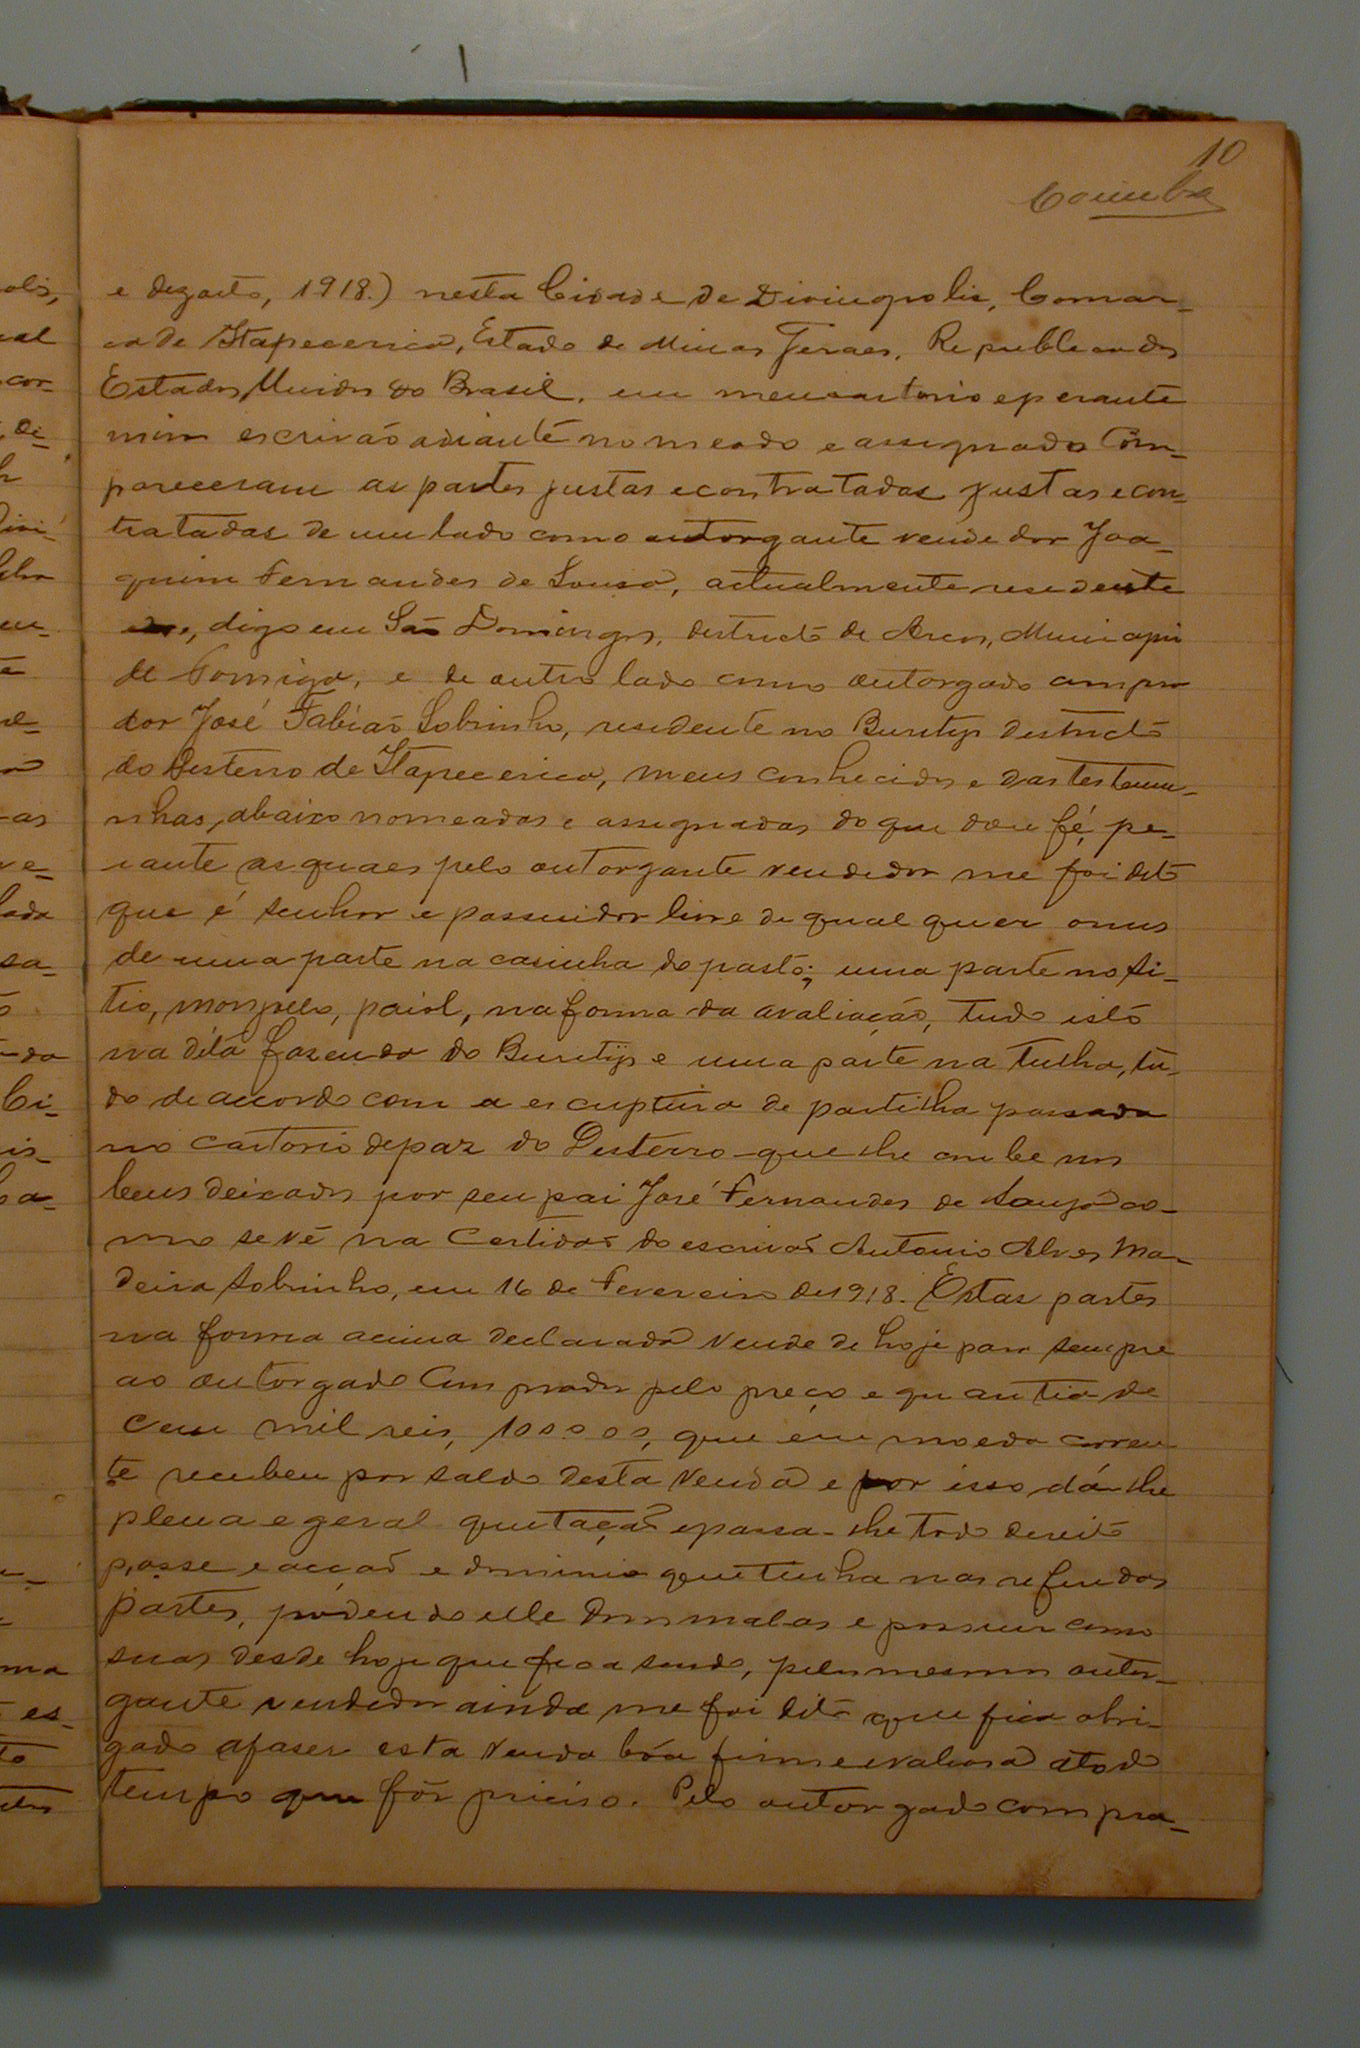 10
Coimbra
e dezoito, 1918.) nesta Cidade de Divinopolis, Comar-
ca de Itapecerica, Estado de Minas Geraes, Republica dos
Estados Unidos do Brasil, em meu cartorio e perante
mim escrivão adiante nomeado e assignado Com-
pareceram as partes justas e contratadas justas e con-
tratadas de um lado como outorgante vendedor Joa-
quim Fernandes de Sousa, actualmente residente
digo em São Domingos, destricto de Arcos, Municipio
de Formiga, e de outro lado como outorgado compra
dor José Fabião Sobrinho, residente no Buritys destricto
do Desterro de Itapecerica, meus conhecidos e das testemu-
nhas, abaixo nomeadas e assignadas do que dou fé, pe-
rante as quaes pelo outorgante vendedor me foi dito
que é senhor e possuidor livre de qual quer onus
de uma parte na casinha do pasto; uma parte no si-
tio, monjollo, paiol, na forma da avaliação, tudo isto
na dita fazenda do Buritys e uma parte na tulha, tu-
do de accordo com a escriptura de partilha passada
no cartorio de paz do Desterro que lhe coube nos
bens deixados por seu pai José Fernandes de Souza co-
mo se vê na Certidão do escrivão Antonio Alves Ma-
deira Sobrinho, em 16 de Fevereiro de 1918. Estas partes
na forma acima declarada vende de hoje para sempre
ao outorgado Comprador pelo preço e quantia de
cem mil reis, 100000, que em moeda corren
te recebeu por saldo desta venda e por isso dá-lhe
plena e geral quetação e passa-lhe todo direito
posse e acção e dominio que tinha nas referidas
partes, podendo elle dominal-as e possuir como
suas desde hoje que fica sendo, pelo mesmo outor-
gante vendedor ainda me foi dito que fica obri-
gado a faser esta venda bôa firme e valiosa a todo
tempo que fôr preciso. Pelo outorgado compra-